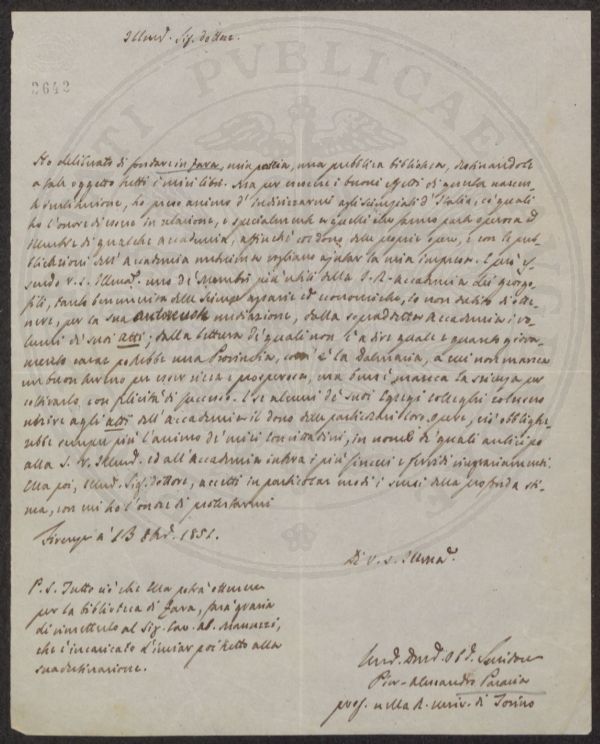 Illmo. Sig. dottore.
2642
Ho deliberato di fondare in Zara, mia patria, una pubblica biblioteca, destinandole
a tale oggetto tutti i miei libri. Ma per essere i buoni effetti di questa nascen-
te Instituzione, ho preso animo d'indirizzarmi agli scienziati d'Italia, co' quali
ho l'onore di essere in relazione, e specialmente a quelli che fanno parte operosa ed
illustre di qualche accademia, affinchè col dono delle proprie opere, e con le pub-
blicazioni dell'accademia medesima vogliano ajutar la mia impresa. E però es-
sendo V. S. Illma. uno de' membri più utili della I. R. Accademia dei georgo-
fili, tanto benemerita delle scienze agrarie ed economiche, io non dubito di otte-
nere, per la sua autorevole mediazione, dalla sopraddetta Accademia i vo-
lumi de' suoi atti; dalla lettura de' quali non è a dire quale e quanto giova-
mento trarne potrebbe una Provincia, com' è la Dalmazia, a cui non manca
un buon terreno per esser ricca e prosperosa, ma bensì manca la scienza per
coltivarlo con felicità di successo. Che se alcuni de' suoi egregi colleghi volessero
unire agli atti dell'Accademia il dono delle particolari loro opere, ciò obblighe-
rebbe sempre più l'animo de' miei concittadini, in nome de' quali anticipo
alla S. V. Illma. ed all'Accademia intera i più sinceri e fervidi ringraziamenti.
Ella poi, Illmo. Sig. dottore, accetti in particolar modo i sensi della profonda sti-
ma, con cui ho l'onore di protestarmi
Firenze a' 13 8bre. 1851.
Di V. S. Illma.
P. S. Tutto ciò che Ella potrà ottenere
per la biblioteca di Zara, farà grazia
di rimetterlo al Sig. Cav. Ab. Manuzzi,
che è incaricato d'inviar poi tutto alla
sua destinazione.
Umo. Dmo. Obb. Servitore
Pier-Alessandro Paravia
prof. nella R. Univ. di Torino